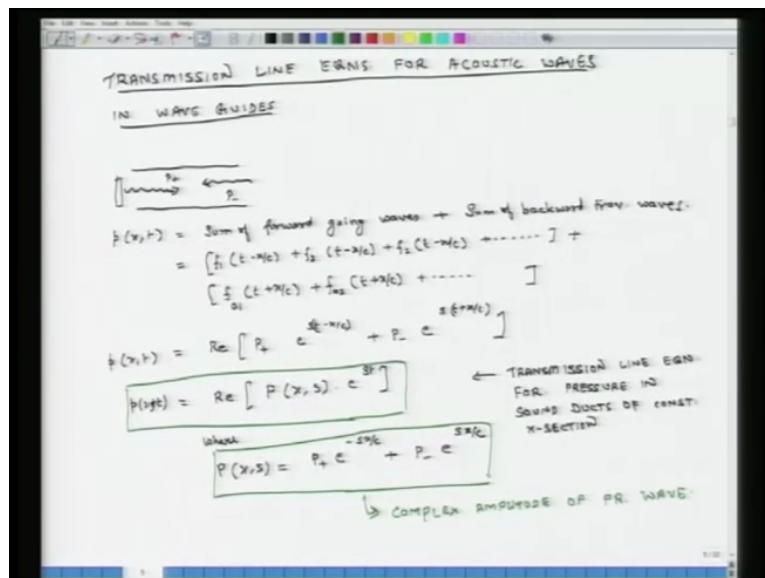 TRANSMISSION LINE EQNS FOR ACOUSTIC WAVES
IN WAVE GUIDES
P+
P-
p(x,t) = Sum of forward going waves + Sum of backward Trav. waves.
= [f1 (t-x/c) + f2 (t-x/c) + f2 (t-x/c) + ......] +
[f (t+x/c) + f (t+x/c) + ...... ]
p(x,t) = Re [ P+ e^s(t-x/c) + P- e^s(t+x/c) ]
p(x,t) = Re [ P(x,s) . e^st ]
← TRANSMISSION LINE EQN
FOR PRESSURE IN
SOUND DUCTS OF CONST.
X-SECTION
where
P(x,s) = P+ e^-sx/c + P- e^sx/c
↳ COMPLEX AMPLITUDE OF PR. WAVE.